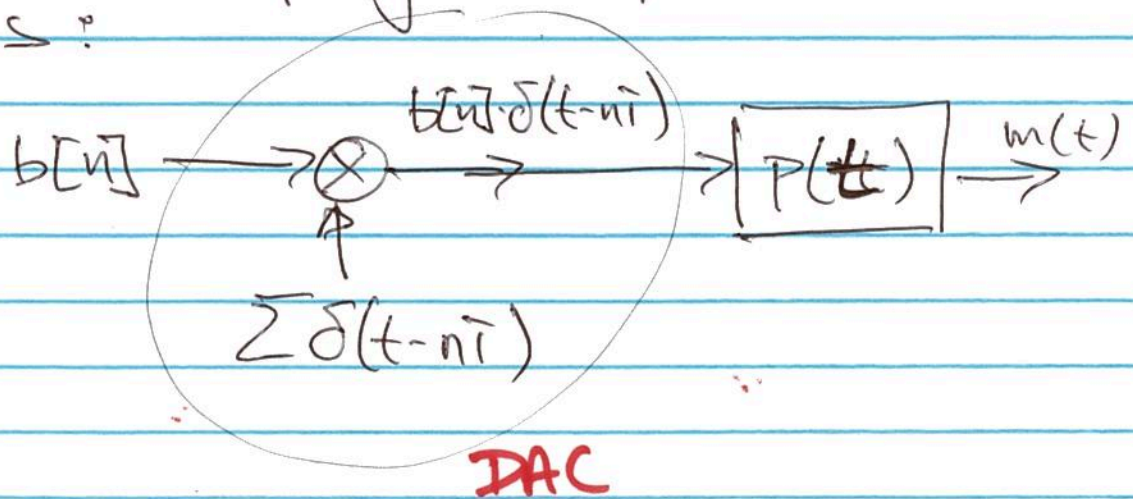 s:
b[n]·δ(t-nT)
b[n] p(t) m(t)
∑ δ(t-nT)
DAC